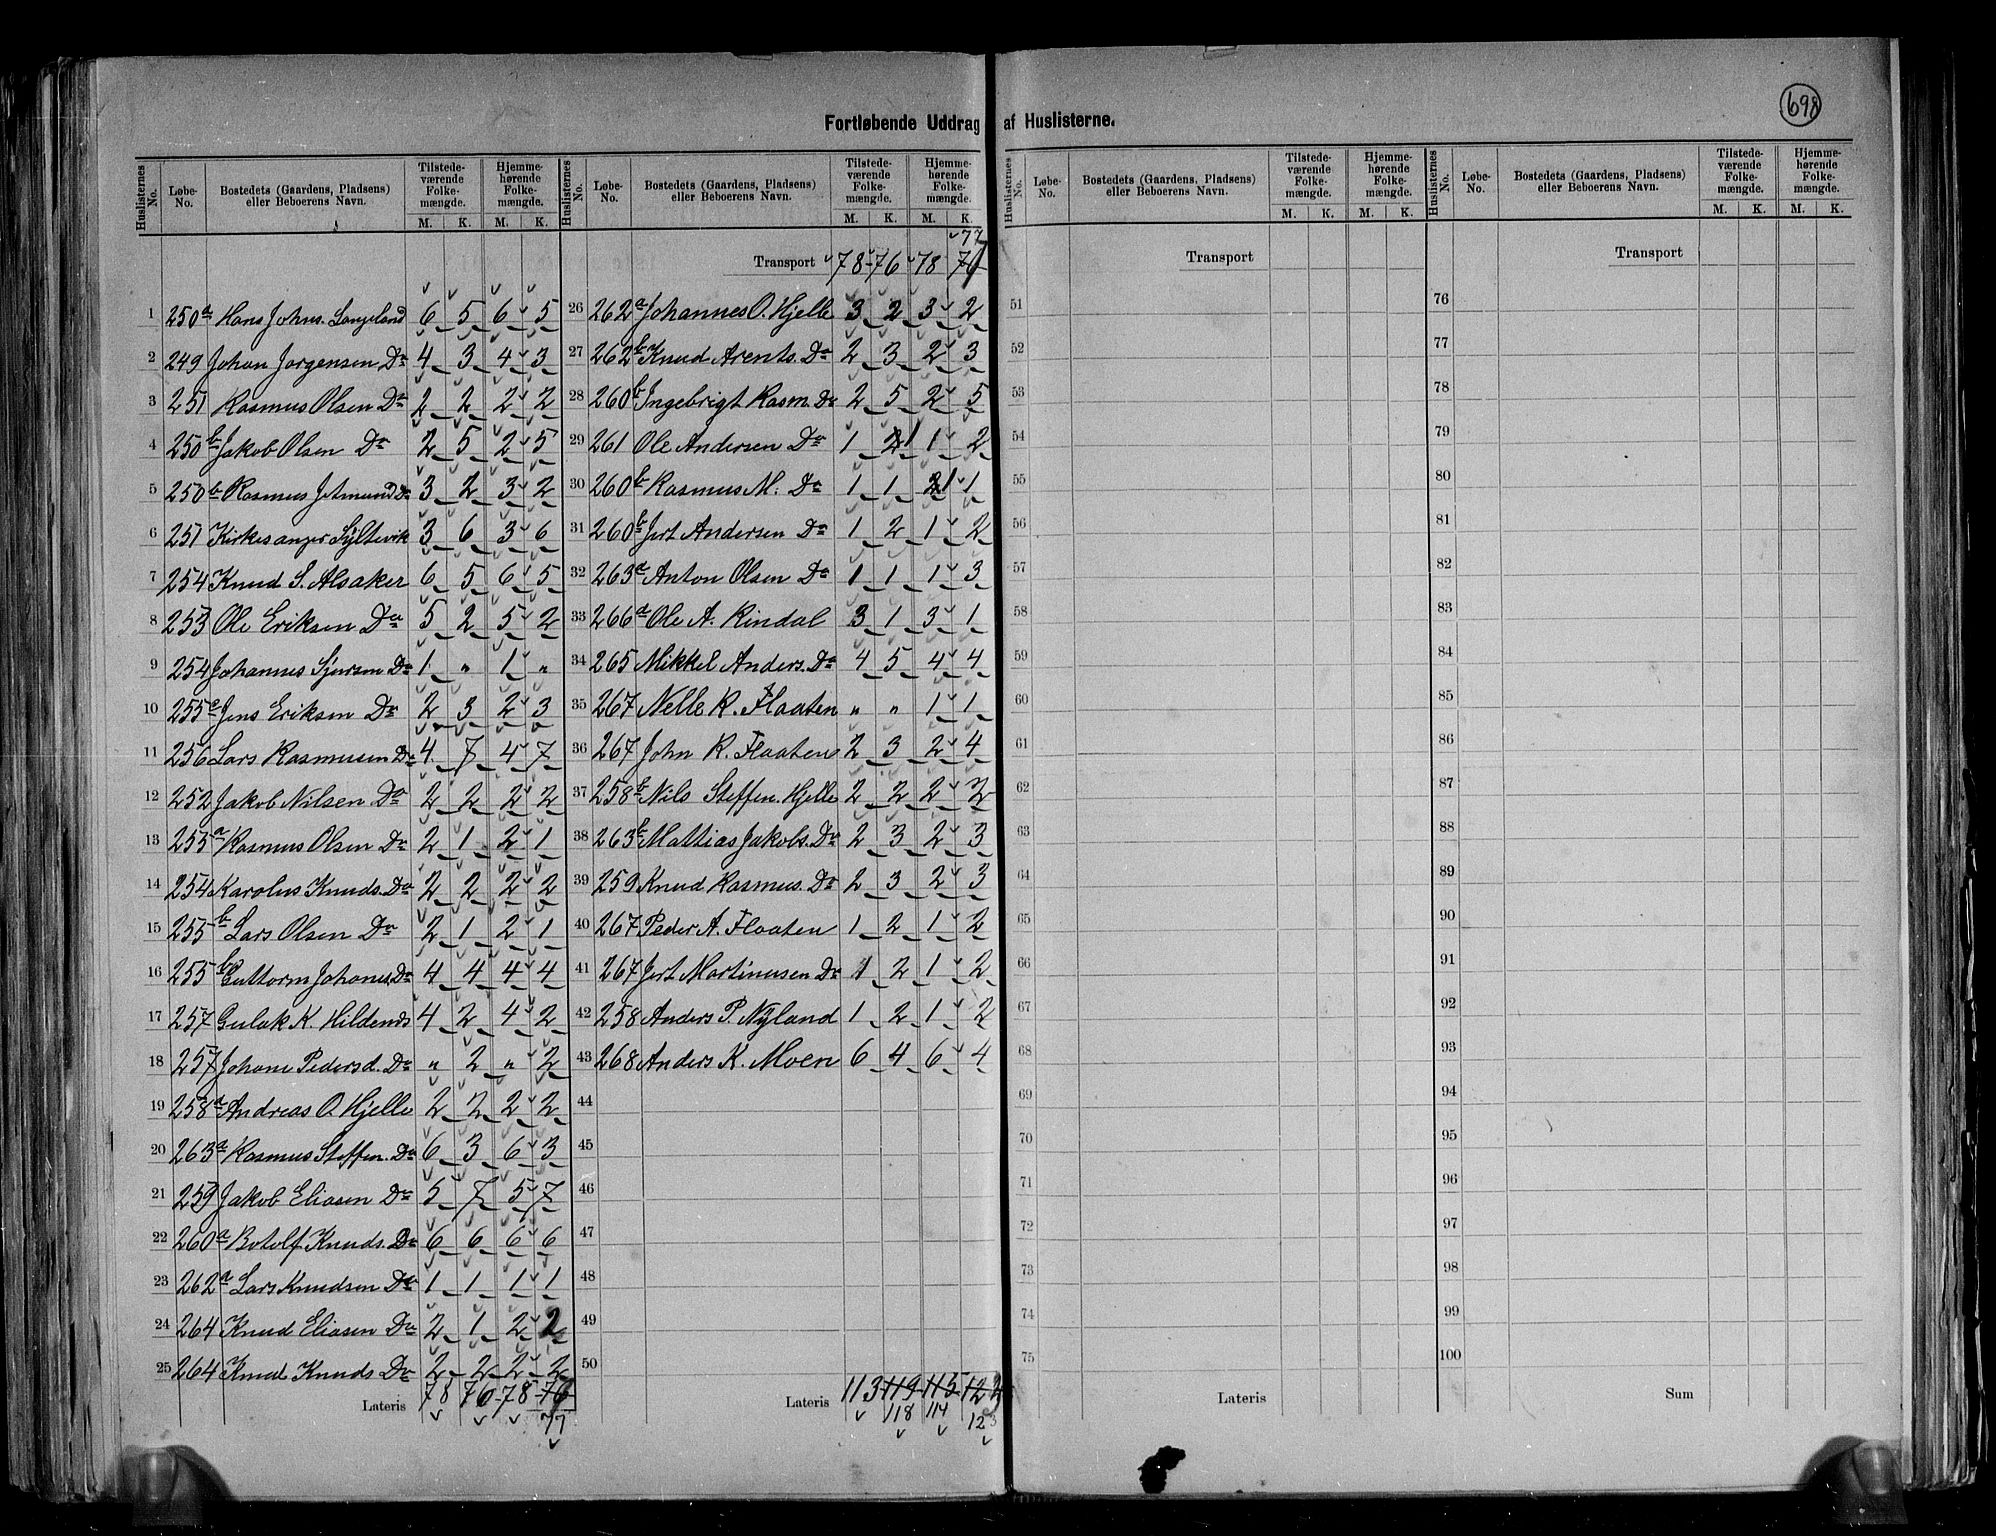 698
Fortløbende Uddrag af Huslisterne.
Huslisternes No. Løbe-No. Bostedets (Gaardens, Pladsens) eller Beboerens Navn. Tilstedeværende Folkemængde. M. K. Hjemmehørende Folkemængde. M. K.
1 250a Hans Johns. Langeland 6 5 6 5
2 249 Johan Jørgensen Do 4 3 4 3
3 251 Rasmus Olsen Do 2 2 2 2
4 250b Jakob Olsen Do 2 5 2 5
5 250b Rasmus Jetmund Do 3 2 3 2
6 251 Kirkesanger Syltevik 3 6 3 6
7 254 Knud S. Alsaker 6 5 6 5
8 253 Ole Eriksen Do 5 2 5 2
9 254 Johannes Sjursen Do 1 " 1 "
10 255c Jens Eriksen Do 2 3 2 3
11 256 Lars Rasmusen Do 4 7 4 7
12 252 Jakob Nilsen Do 2 2 2 2
13 255a Rasmus Olsen Do 2 1 2 1
14 254 Karolus Knuds. Do 2 2 2 2
15 255b Lars Olsen Do 2 1 2 1
16 255b Guttorm Johans. Do 4 4 4 4
17 257 Gulak K. Hildenes 4 2 4 2
18 257 Johane Pedersd. Do " 2 " 2
19 258a Andreas O. Hjelle 2 2 2 2
20 263a Rasmus Steffen. Do 6 3 6 3
21 259 Jakob Eliasen Do 5 7 5 7
22 260a Botolf Knuds. Do 6 6 6 6
23 262a Lars Knudsen Do 1 1 1 1
24 264 Knud Eliasen Do 2 1 2 2
25 264 Knud Knuds Do 2 2 2 2
Lateris 78 76 78 76
77
Huslisternes No. Løbe-No. Bostedets (Gaardens, Pladsens) eller Beboerens Navn. Tilstedeværende Folkemængde. M. K. Hjemmehørende Folkemængde. M. K.
77
Transport 78 76 78 76
26 262a Johannes O. Hjelle 3 2 3 2
27 262b Knud Arents. Do 2 3 2 3
28 260b Ingebrigt Rasm. Do 2 5 2 5
29 261 Ole Andersen Do 1 2 1 1 2
30 260b Rasmus M. Do 1 1 2 1 1
31 260b Jert Andersen Do 1 2 1 2
32 263a Anton Olsen Do 1 1 1 3
33 266a Ole A. Rindal 3 1 3 1
34 265 Mikkel Anders. Do 4 5 4 4
35 267 Nelle R. Flaaten " " 1 1
36 267 John R. Flaaten 2 3 2 4
37 258b Nils Steffen. Hjelle 2 2 2 2
38 263b Mattias Jakobs. Do 2 3 2 3
39 259 Knud Rasmus. Do 2 3 2 3
40 267 Peder A. Flaaten 1 2 1 2
41 267 Jert Martinusen Do 1 2 1 2
42 258 Anders P. Nyland 1 2 1 2
43 268 Anders K. Moen 6 4 6 4
44
45
46
47
48
49
50
Lateris 113 119 115 122
118 114 123
Huslisternes No. Løbe-No. Bostedets (Gaardens, Pladsens) eller Beboerens Navn. Tilstedeværende Folkemængde. M. K. Hjemmehørende Folkemængde. M. K.
Transport
51
52
53
54
55
56
57
58
59
60
61
62
63
64
65
66
67
68
69
70
71
72
73
74
75
Lateris
Huslisternes No. Løbe-No. Bostedets (Gaardens, Pladsens) eller Beboerens Navn. Tilstedeværende Folkemængde. M. K. Hjemmehørende Folkemængde. M. K.
Transport
76
77
78
79
80
81
82
83
84
85
86
87
88
89
90
91
92
93
94
95
96
97
98
99
100
Sum